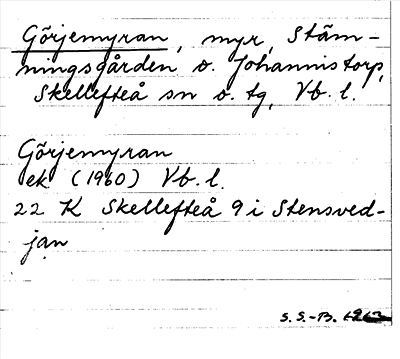 Görjemyran, myr, Stäm-
ningsgården o. Johannistorp,
Skellefteå sn o. tg, Vb. l.
Görjemyran
ek (1960) Vb. l.
22 K Skellefteå 9 i Stensved-
jan
S. S.-B.